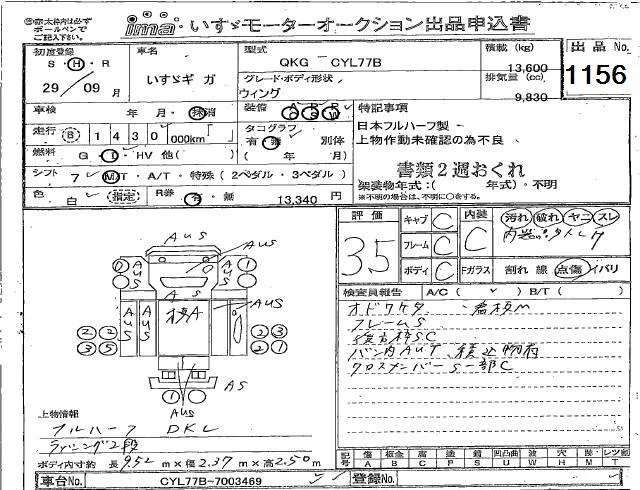 ㊟赤太枠内は必ず
ボールペンで
ご記入下さい。
ima いすゞモーターオークション出品申込書
初度登録
S・H・R
29年09月
車名
いすゞギガ
型式
QKG － CYL77B
グレード・ボディ形状
ウィング
積載 (kg)
13,600
排気量 (cc)
9,830
出品 No.
1156
車検 年・月・抹消
装備 A R R
C S W
走行 (B) 1430 000km
タコグラフ
有・無 別体
( 年 月)
燃料 G D HV 他( )
シフト 7 MT・A/T・特殊(2ペダル・3ペダル)
色 白 (指定)
R券 有・無 13,340 円
特記事項
日本フルハーフ製
上物作動未確認の為不良
書類2週おくれ
架装物年式:( 年式)・不明
※不明の場合は、不明に〇をする。
評価
3.5
キャブ C
フレーム C
ボディ C
内装 C
Fガラス
汚れ 破れ ヤニ スレ
割れ 線 点傷 イバリ
検査員報告 A/C( ✓ ) B/T( )
フレームS
クロスメンバーS一部C
AUS
AUS
AUS
AUS
AUS
AS
AUS
上物情報
フルハーフ DKL
ラッシング2段
ボディ内寸約 長 9.52 m×巾 2.37 m×高 2.50 m
記号 傷 A 板金 B 腐 C 塗 P 凹 S 凸凹曲 U 波 W 穴 H 跡 T レツ割 M
車台No. CYL77B-7003469
登録No.